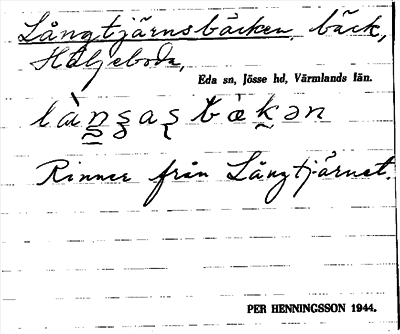 Långtjärnsbäcken, bäck,
Häljeboda,
Eda sn, Jösse hd, Värmlands län.
Rinner från Långtjärnet.
PER HENNINGSSON 1944.